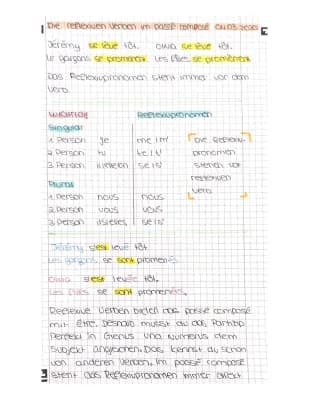 Die reflexiven Verben im passé composé
Jérémy se lève tôt. Olivia se lève tôt.
Le garçons se promènent. Les filles se promènent.
Das Reflexivpronomen steht immer vor dem
Verb.
WICHTIG Reflexivpronomen
Singular
1. Person je me / m'
2. Person tu te / t'
3. Person il/elle/on se / s'
Die Reflexiv-
pronomen
stehen vor
reflexiven
Verb
Plural
1. Person nous nous
2. Person vous vous
3. Person ils/elles se / s'
Jérémy s'est levé tôt.
Les garçons se sont promenés.
Olivia s'est levée tôt.
Les filles se sont promenées.
Reflexive Verben bildet das passé composé
mit être. Deshalb musst du das Partizip
Perfekt in Genus und Numerus dem
Subjekt angleichen. Das kennst du schon
von anderen Verben. Im passé composé
steht das Reflexivpronomen immer direkt